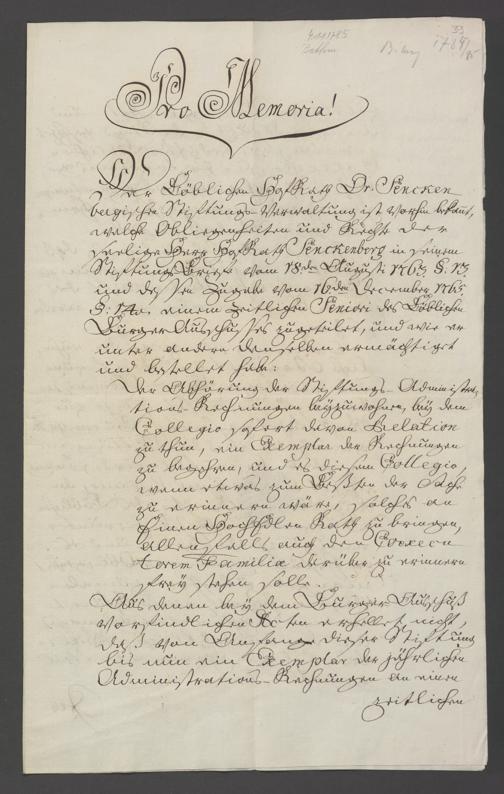 33
1784/85
Pro Memoria!
Der Löblichen HofRath Dr. Sencken
bergischen Stiftungs-Verwaltung ist vorhin bekant,
welche Obliegenheiten und Rechte der
Seelige Herr HofRath Senckenberg in seinem
Stiftungs Brief vom 18den August 1763 §. 13.
und dessen Zugabe vom 16den December 1765
§. 14. einem zeitlichen Seniori des Löblichen
Burger Ausschusses zugetheilet, und wie er
unter andern denselben ermächtiget
und bestellet habe:
Der Abhörung der Stiftungs-Administra-
tions-Rechnungen beyzuwohnen, bey dem
Collegio sofort davon Relation
zu thun, ein Exemplar der Rechnungen
zu begehren, und es diesem Collegio,
wenn etwas zum Besten der Sache
zu erinnern wäre, solches an
Einen HochEdlen Rath zu bringen,
allenfalls auch den Exsecu
torem Familiæ darüber zu erinnern
frey stehen solle.
Aus denen bey dem Burger Ausschuß
vorfindlichen Acten erhellet nicht,
daß von Anfange dieser Stiftung
bis nun ein Exemplar der jährlichen
Administrations-Rechnungen an einen
zeitlichen